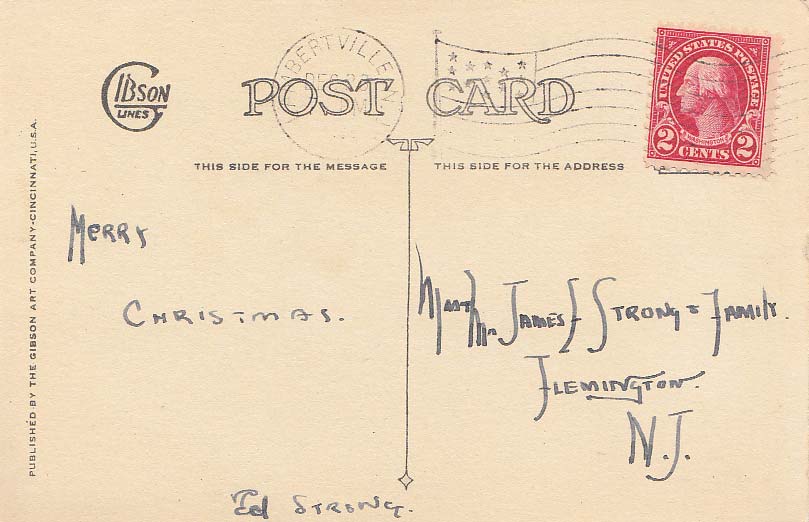 GIBSON
LINES
DEC
POST CARD
UNITED STATES POSTAGE
WASHINGTON
2 CENTS 2
THIS SIDE FOR THE MESSAGE
THIS SIDE FOR THE ADDRESS
PUBLISHED BY THE GIBSON ART COMPANY-CINCINNATI, U.S.A.
MERRY
CHRISTMAS.
Ed STRONG.
JAMES STRONG & FAMILY.
FLEMINGTON.
N.J.